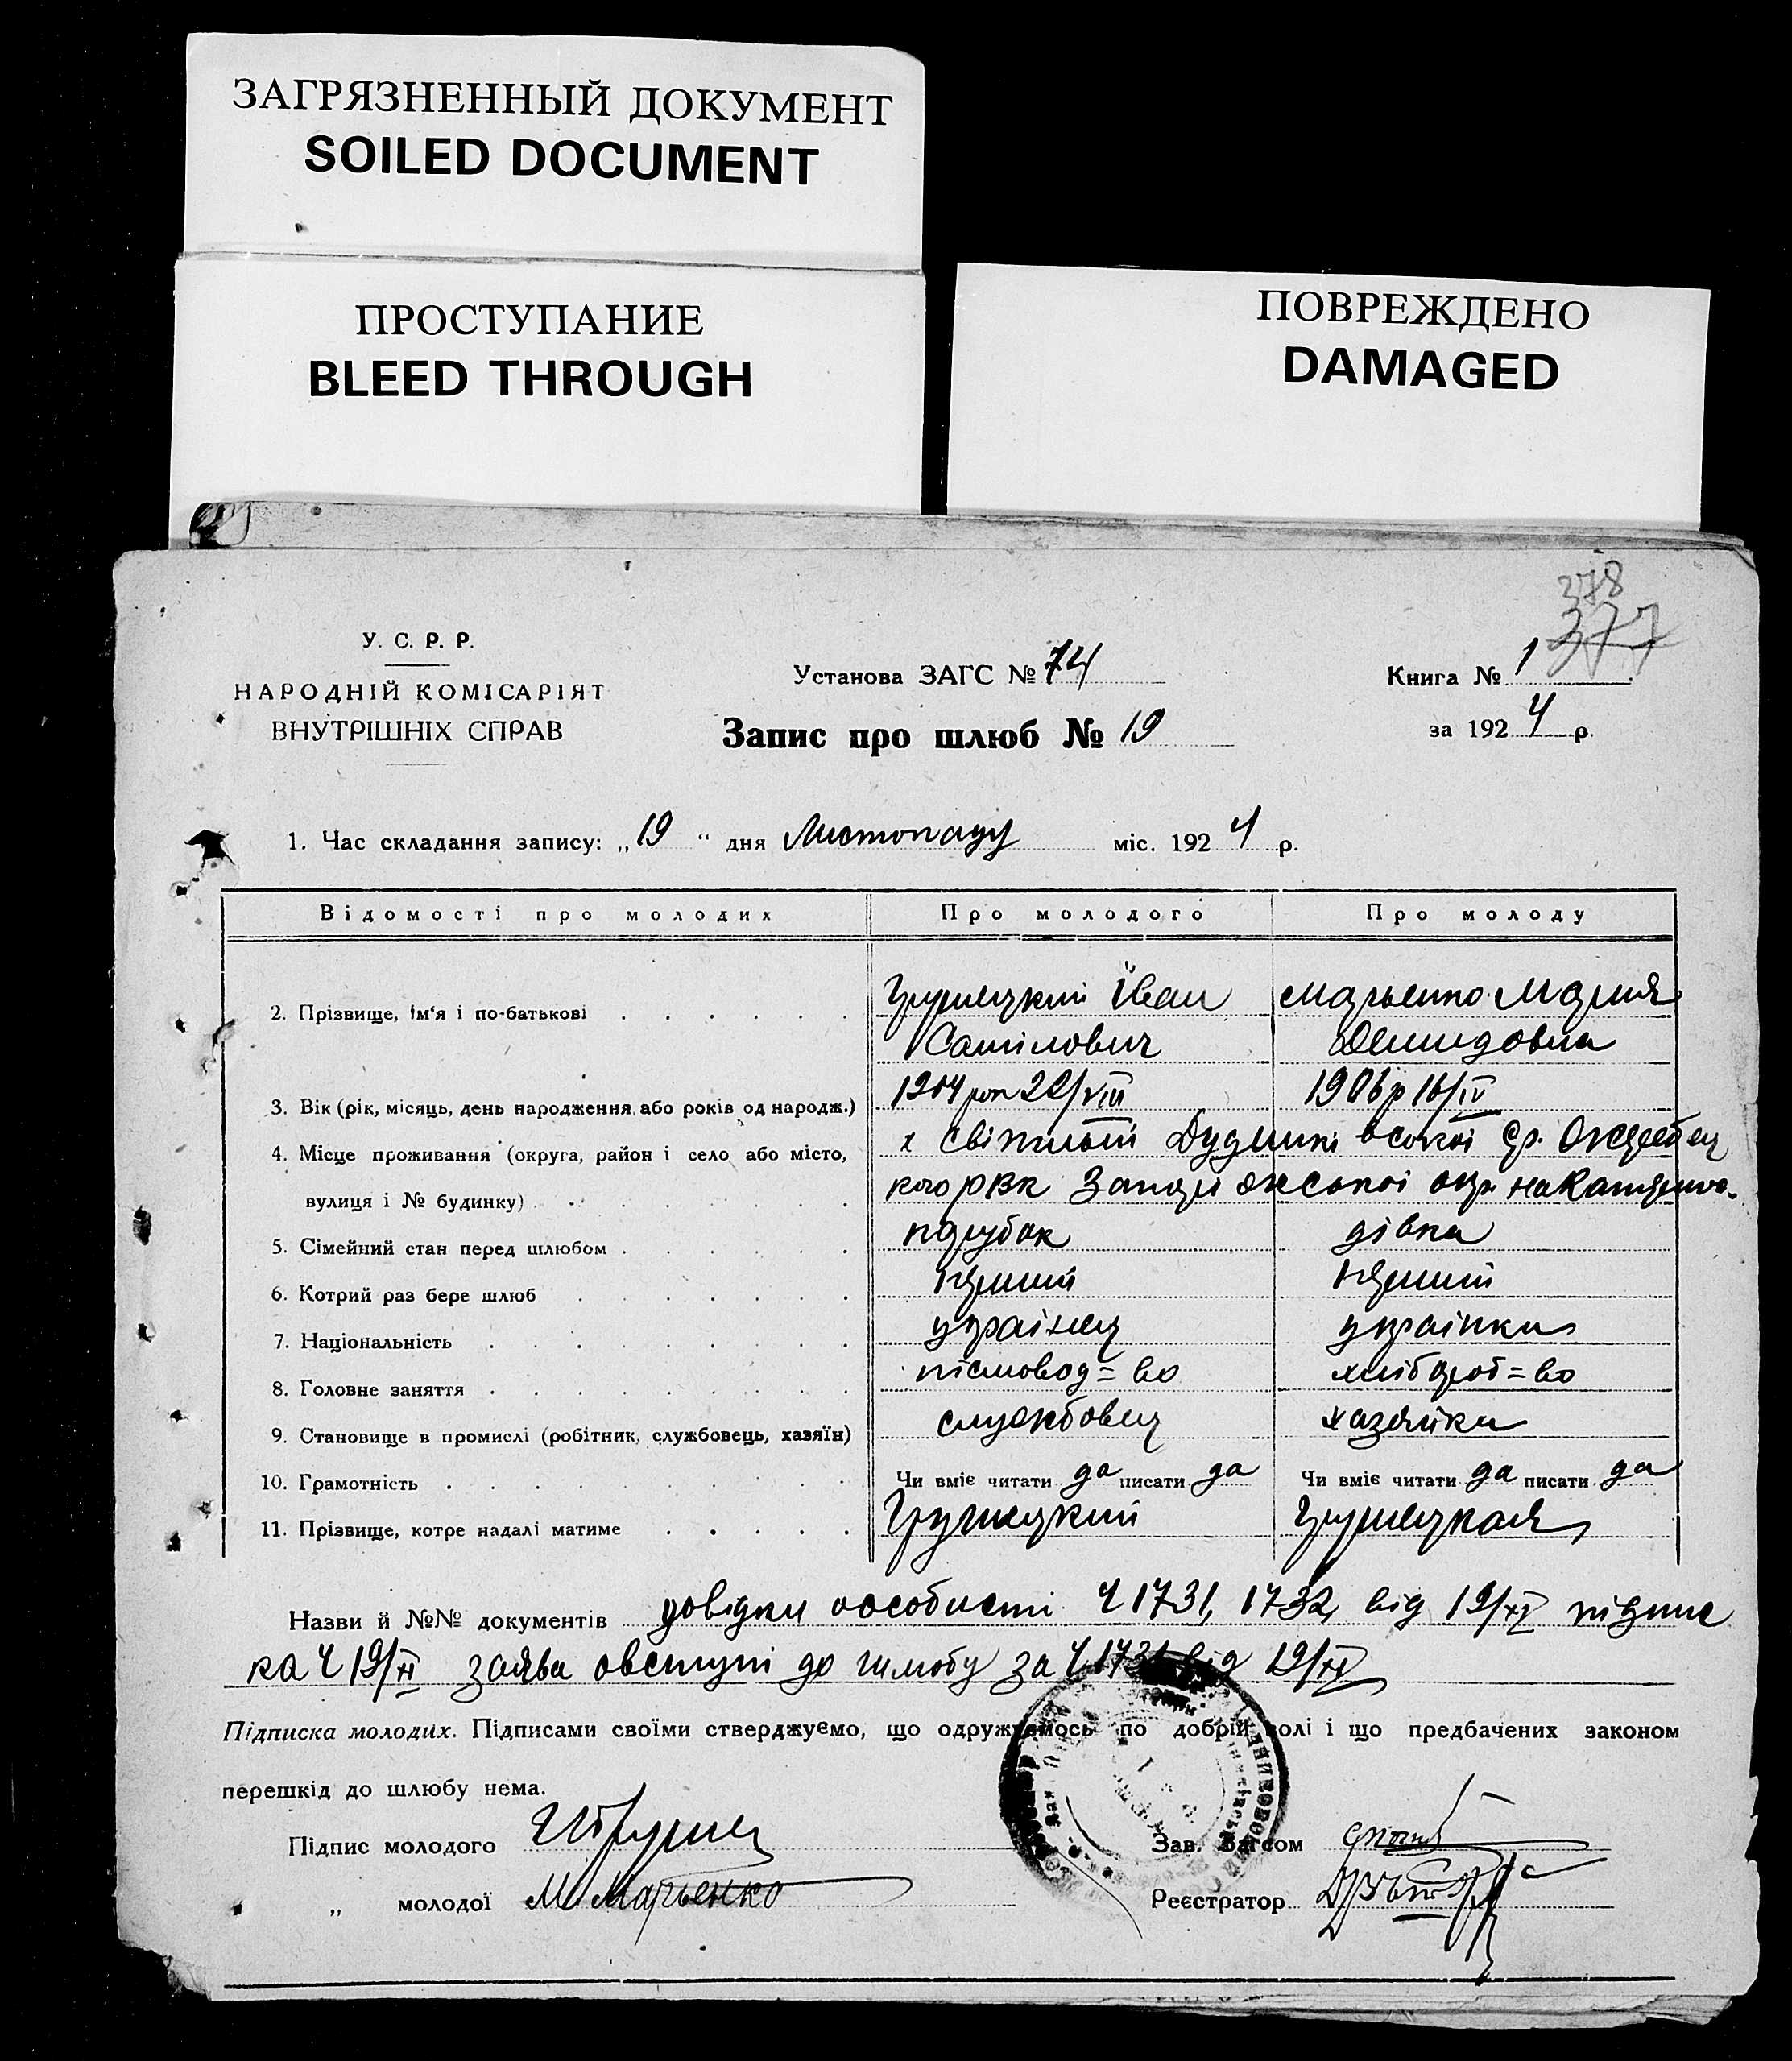 ЗАГРЯЗНЕННЫЙ ДОКУМЕНТ
SOILED DOCUMENT
ПРОСТУПАНИЕ
BLEED THROUGH
ПОВРЕЖДЕНО
DAMAGED
378
377
У. С. Р. Р.
НАРОДНІЙ КОМІСАРІЯТ
ВНУТРІШНІХ СПРАВ
Установа ЗАГС № 74
Книга № 1
Запис про шлюб № 19
за 1924 р.
1. Час складання запису: „19“ дня Листопаду міс. 1924 р.
Відомості про молодих Про молодого Про молоду
2. Прізвище, ім'я і по-батькові Грушецкий Іван Марьенко Мария
Самілович Демидовна
3. Вік (рік, місяць, день народження або років од народж.) 1904 роп 22/VIII 1906 р 16/IV
4. Місце проживання (округа, район і село або місто, х Світлий
вулиця і № будинку) кого РВК Запоріжської окр.
5. Сімейний стан перед шлюбом парубок дівка
6. Котрий раз бере шлюб перший перший
7. Національність українец українка
8. Головне заняття пісмовод=во хлібороб=во
9. Становище в промислі (робітник, службовець, хазяїн) службовец хазяйка
10. Грамотність Чи вміє читати да писати да Чи вміє читати да писати да
11. Прізвище, котре надалі матиме Грушецкий Грушецкая
Назви й №№ документів довідки особисті Ч 1731, 1732, від 19/XI підпис
ка Ч 19/XI заява овступі до шлюбу за Ч 1731 від 19/XI
Підписка молодих. Підписами своїми стверджуємо, що одружуємось по добрій волі і що предбачених законом
перешкід до шлюбу нема.
Підпис молодого Зав. Загсом
„ молодої М Марьенко Реєстратор